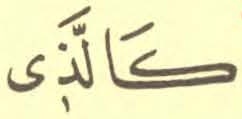 كَالَّذِى